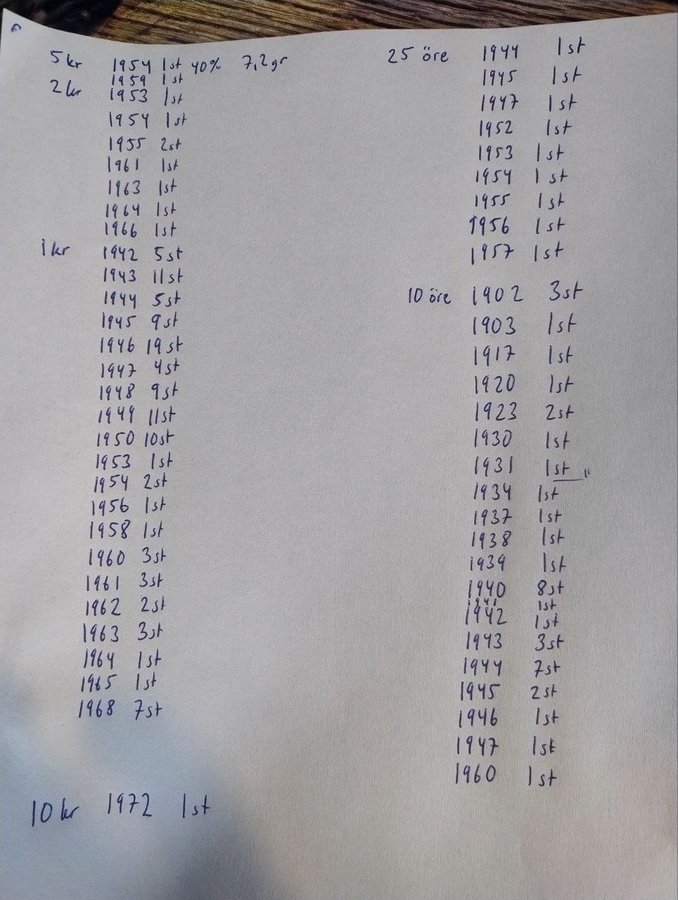 5 kr 1954 1st 40% 7,2gr
1959 1st
2 kr 1953 1st
1954 1st
1955 2st
1961 1st
1963 1st
1964 1st
1966 1st
1 kr 1942 5st
1943 11st
1944 5st
1945 9st
1946 19st
1947 4st
1948 9st
1949 11st
1950 10st
1953 1st
1954 2st
1956 1st
1958 1st
1960 3st
1961 3st
1962 2st
1963 3st
1964 1st
1965 1st
1968 7st
10 kr 1972 1st
25 öre 1944 1st
1945 1st
1947 1st
1952 1st
1953 1st
1954 1st
1955 1st
1956 1st
1957 1st
10 öre 1902 3st
1903 1st
1917 1st
1920 1st
1923 2st
1930 1st
1931 1st "
1934 1st
1937 1st
1938 1st
1939 1st
1940 8st
1941 1st
1942 1st
1943 3st
1944 7st
1945 2st
1946 1st
1947 1st
1960 1st